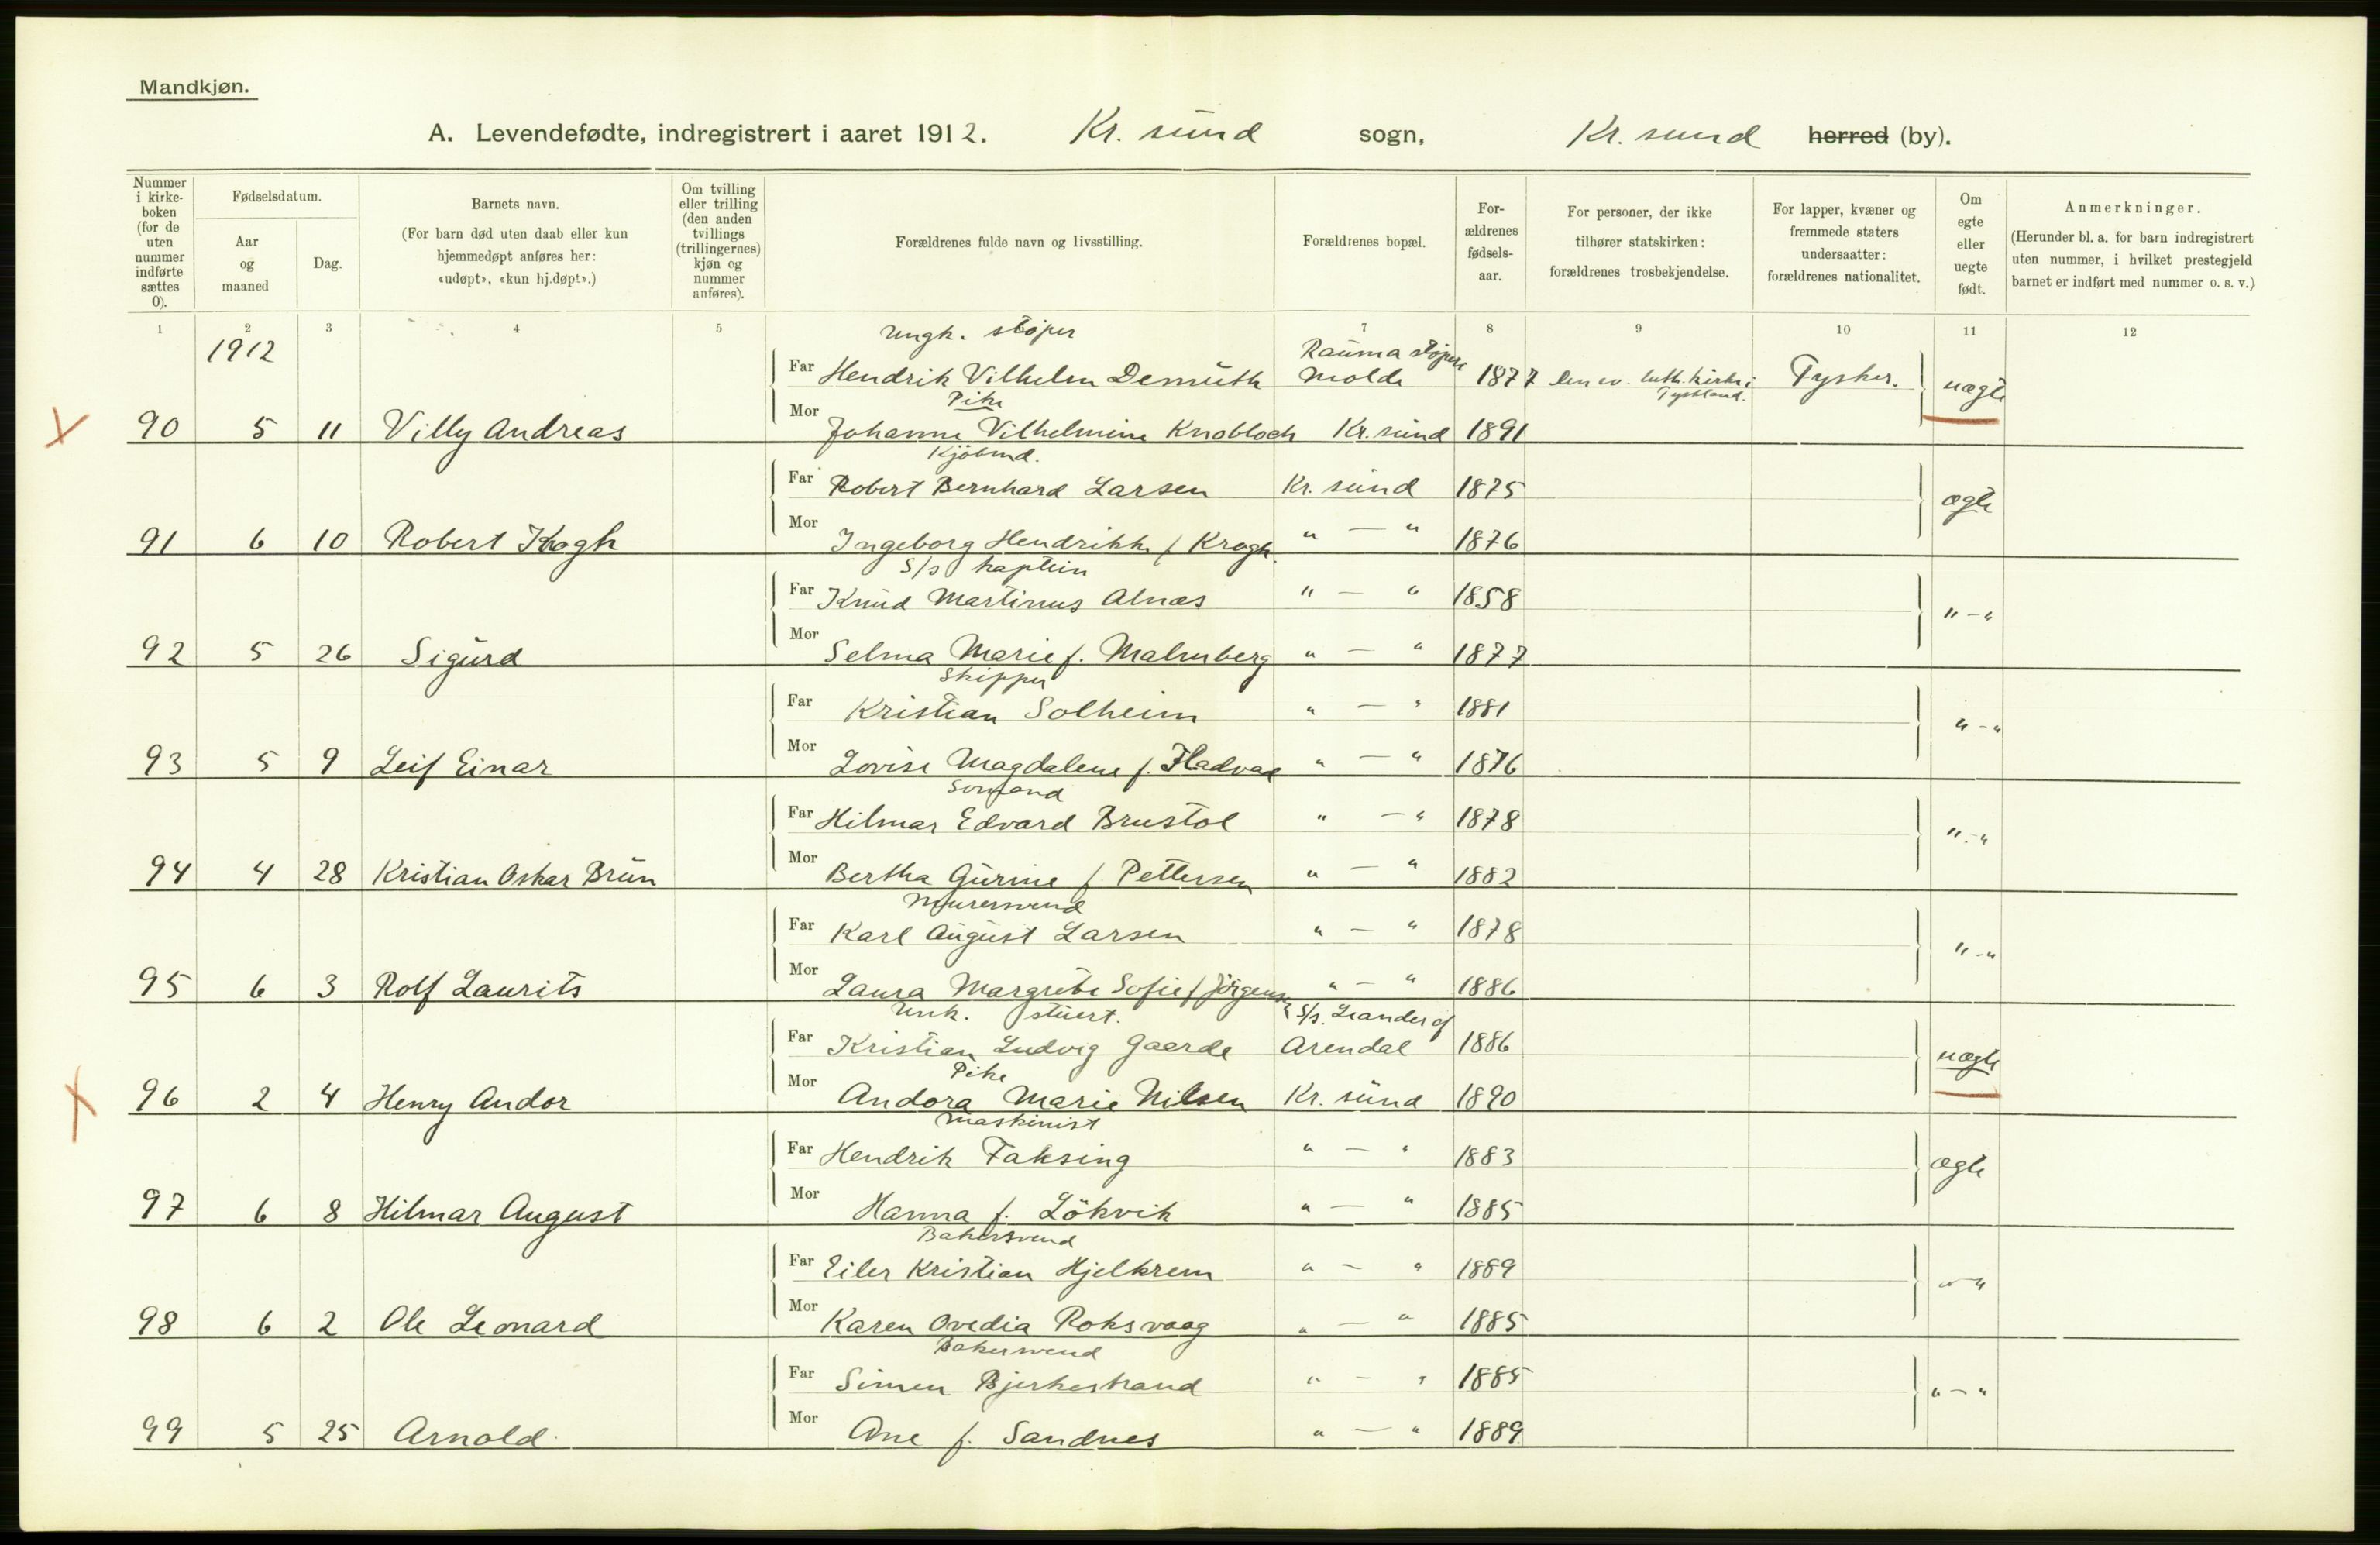 Mandkjøn.
A. Levendefødte, indregistrert i aaret 1912. Kr. sund sogn, Kr. sund herred (by).
Nummer i kirkeboken (for de uten nummer indførte sættes 0).
Fødselsdatum.
Aar og maaned
Dag.
Barnets navn.
(For barn død uten daab eller kun hjemmedøpt anføres her: «udøpt», «kun hj.døpt».)
Om tvilling eller trilling (den anden tvillings (trillingernes) kjøn og nummer anføres).
Forældrenes fulde navn og livsstilling.
Forældrenes bopæl.
Forældrenes fødselsaar.
For personer, der ikke tilhører statskirken: forældrenes trosbekjendelse.
For lapper, kvæner og fremmede staters undersaatter: forældrenes nationalitet.
Om egte eller uegte født.
Anmerkninger.
(Herunder bl. a. for barn indregistrert uten nummer, i hvilket prestegjeld barnet er indført med nummer o. s. v.)
1 2 3 4 5 7 8 9 10 11 12
1912
Ungk. støper Rauma støperi
Far Hendrik Vilhelm Demuth Molde 1877 den ev. luth. kirke i Tyskland. Tysker. uægte
Pike
90 5 11 Villy Andreas Mor Johanne Vilhelmine Knobloch Kr. sund 1891
Kjøbmd.
Far Robert Bernhard Larsen Kr. sund 1875 ægte
91 6 10 Robert Krogh Mor Ingeborg Hendrikke f Krogh. " — " 1876
S/s kaptein
Far Knud Martinus Alnæs " — " 1858 " — "
92 5 26 Sigurd Mor Selma Marie f. Malmberg " — " 1877
Skipper
Far Kristian Solheim " — " 1881 " — "
93 5 9 Leif Einar Mor Lovise Magdalene f. Hadval " — " 1876
Sømand
Far Hilmar Edvard Brustol " — " 1878 " — "
94 4 28 Kristian Oskar Brun Mor Bertha Gurine f Pettersen " — " 1882
Murersvend
Far Karl August Larsen " — " 1878 " — "
95 6 3 Rolf Laurits Mor Laura Margrete Sofie f Jörgensen " — " 1886
Unk. stuert. S/s. Leander af
Far Kristian Ludvig Gaerde Arendal 1886 uægte
Pike
96 2 4 Henry Andor Mor Andora Marie Nilsen Kr. sund 1890
Maskinist
Far Hendrik Faksing " — " 1883 ægte
97 6 8 Hilmar August Mor Hanna f. Lökvik " — " 1885
Bakersvend
Far Eiler Kristian Hjelkrem " — " 1889 " — "
98 6 2 Ole Leonard Mor Karen Ovedia Roksvaag " — " 1885
Bakersvend
Far Simen Bjerkestrand " — " 1885 " — "
99 5 25 Arnold. Mor Ane f. Sandnes " — " 1889